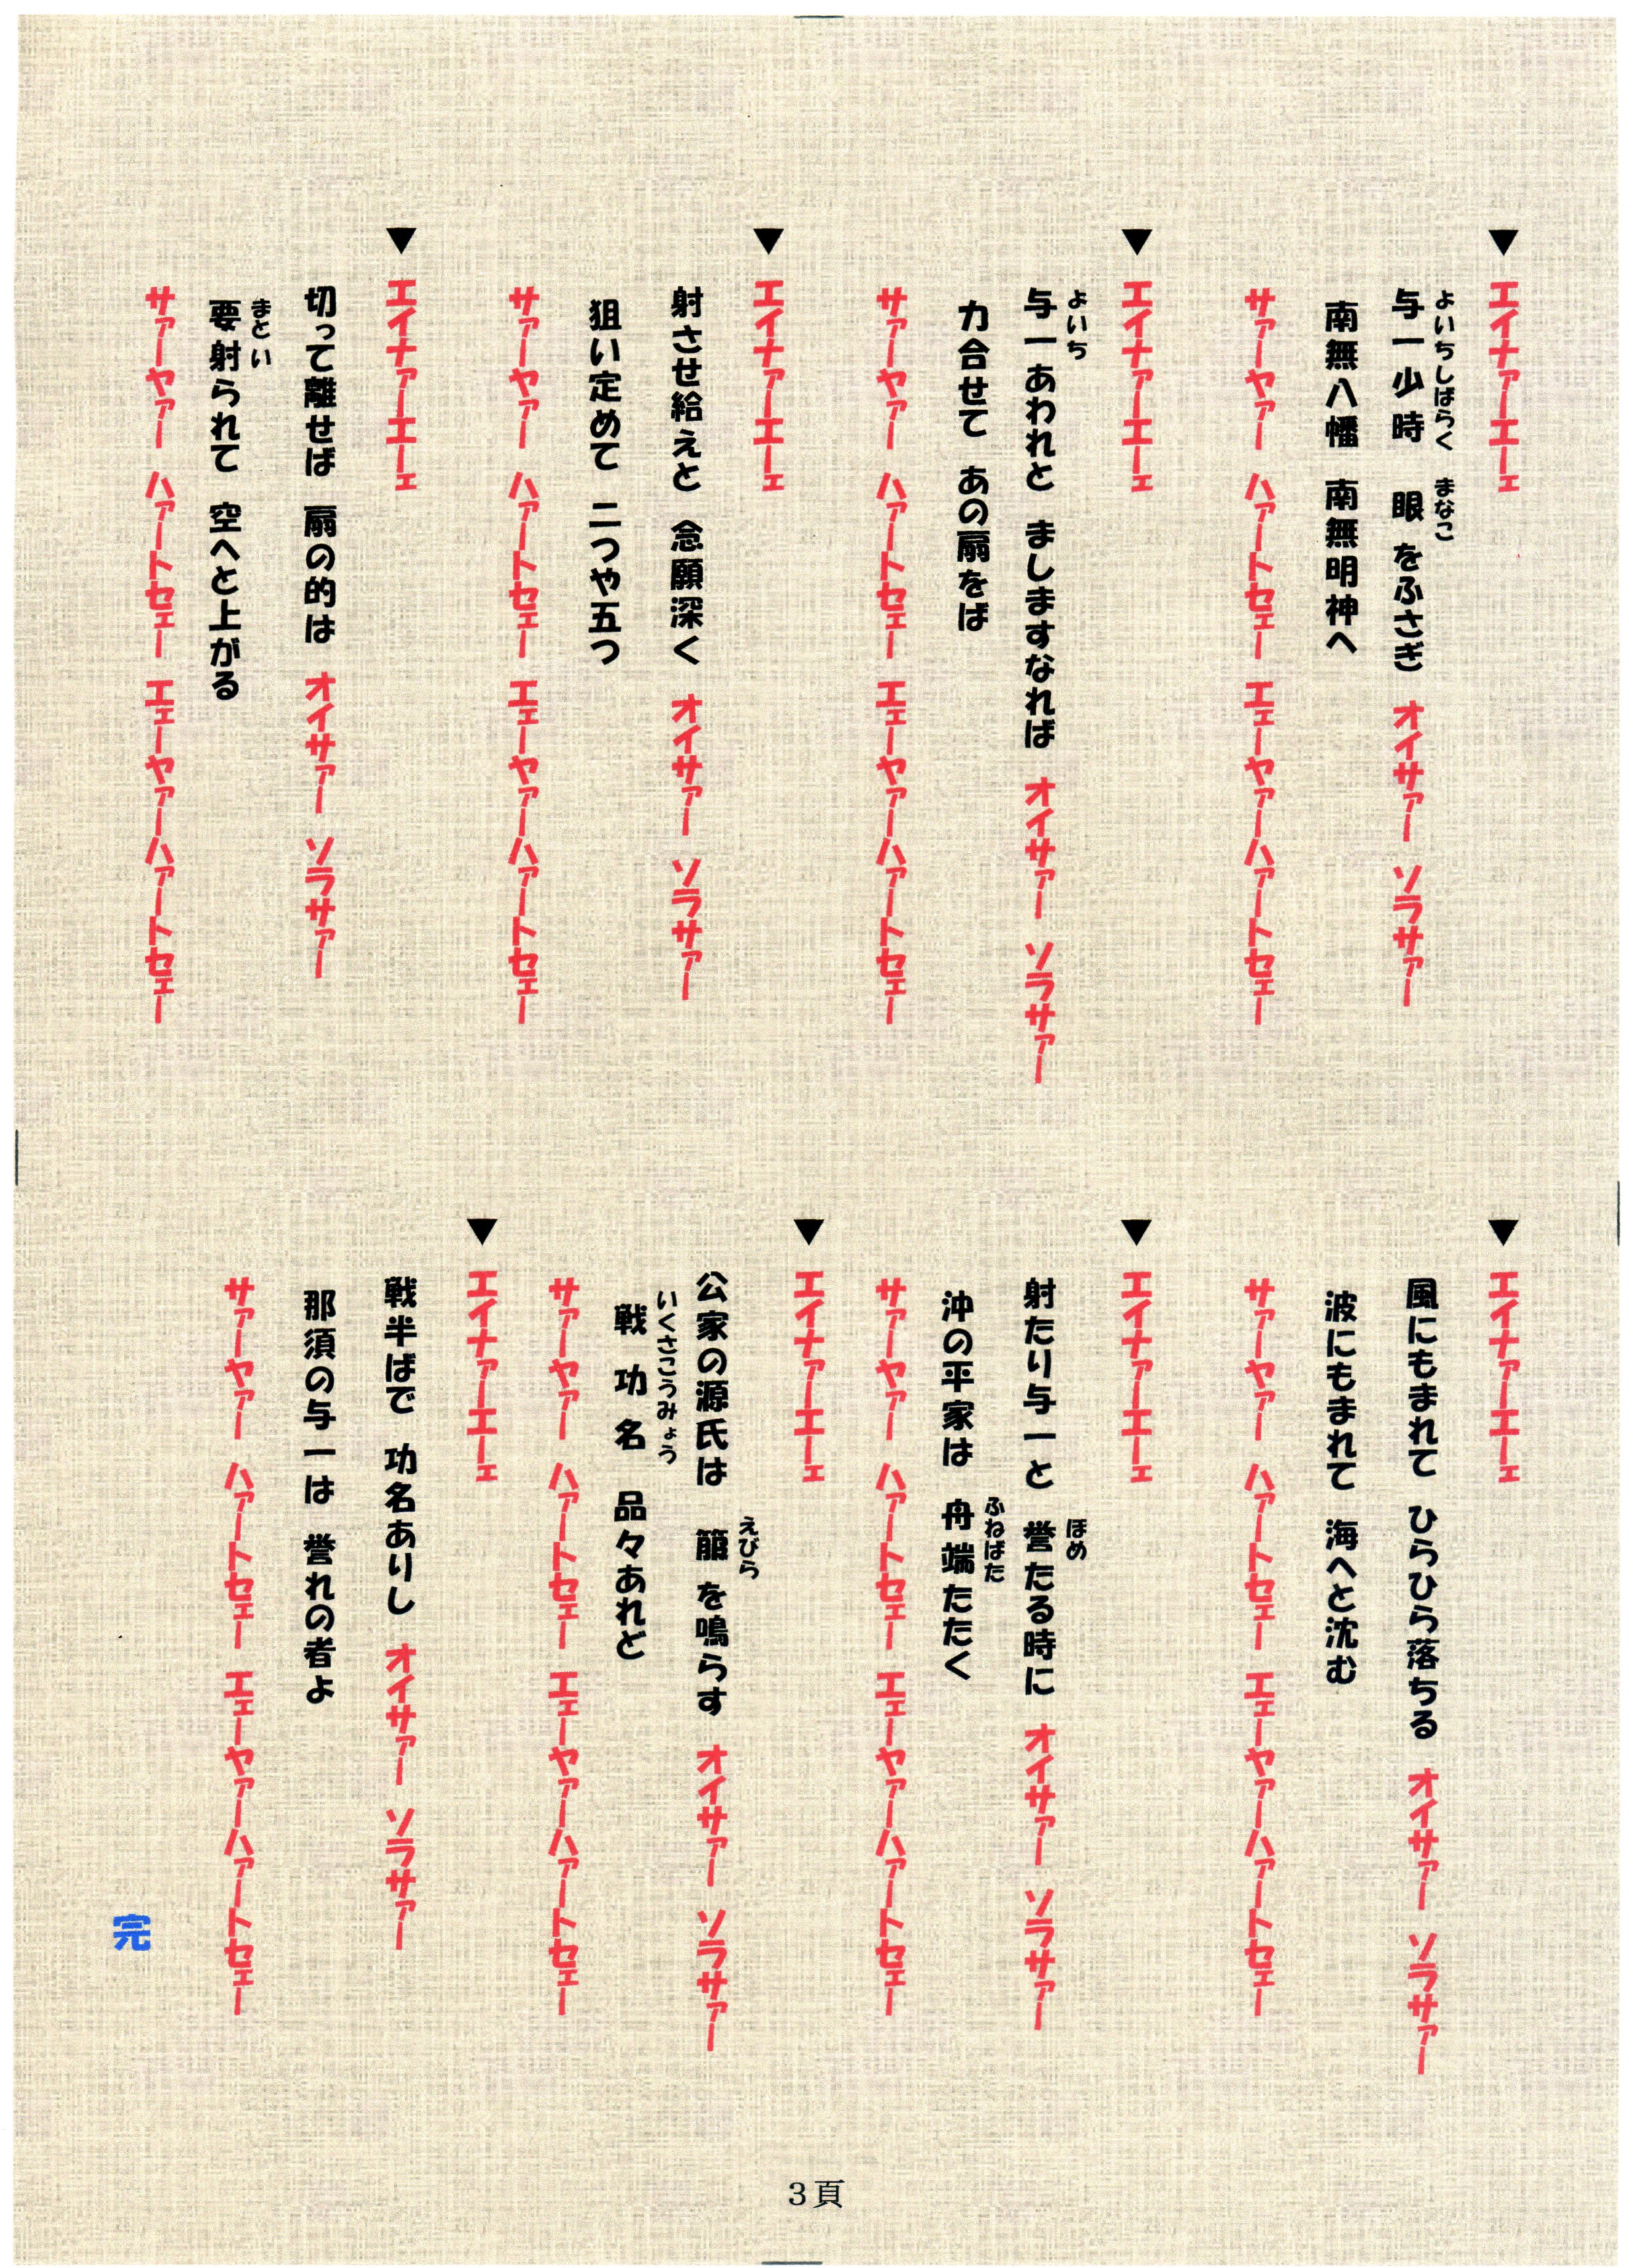 ▼エイナァーエーェ
与一少時 眼をふさぎ オイサァー ソラサァー
よいちしばらく まなこ
南無八幡 南無明神へ
サァーヤァー ハァートセェー エェーヤァーハァートセェー
▼エイナァーエーェ
与一あわれと ましますなれば オイサァー ソラサァー
よいち
力合せて あの扇をば
サァーヤァー ハァートセェー エェーヤァーハァートセェー
▼エイナァーエーェ
射させ給えと 念願深く オイサァー ソラサァー
狙い定めて 二つや五つ
サァーヤァー ハァートセェー エェーヤァーハァートセェー
▼エイナァーエーェ
切って離せば 扇の的は オイサァー ソラサァー
要射られて 空へと上がる
まとい
サァーヤァー ハァートセェー エェーヤァーハァートセェー
▼エイナァーエーェ
風にもまれて ひらひら落ちる オイサァー ソラサァー
波にもまれて 海へと沈む
サァーヤァー ハァートセェー エェーヤァーハァートセェー
▼エイナァーエーェ
射たり与一と 誉たる時に オイサァー ソラサァー
ほめ
沖の平家は 舟端たたく
ふねばた
サァーヤァー ハァートセェー エェーヤァーハァートセェー
▼エイナァーエーェ
公家の源氏は 箙を鳴らす オイサァー ソラサァー
えびら
戦功名 品々あれど
いくさこうみょう
サァーヤァー ハァートセェー エェーヤァーハァートセェー
▼エイナァーエーェ
戦半ばで 功名ありし オイサァー ソラサァー
那須の与一は 誉れの者よ
サァーヤァー ハァートセェー エェーヤァーハァートセェー
完
3頁